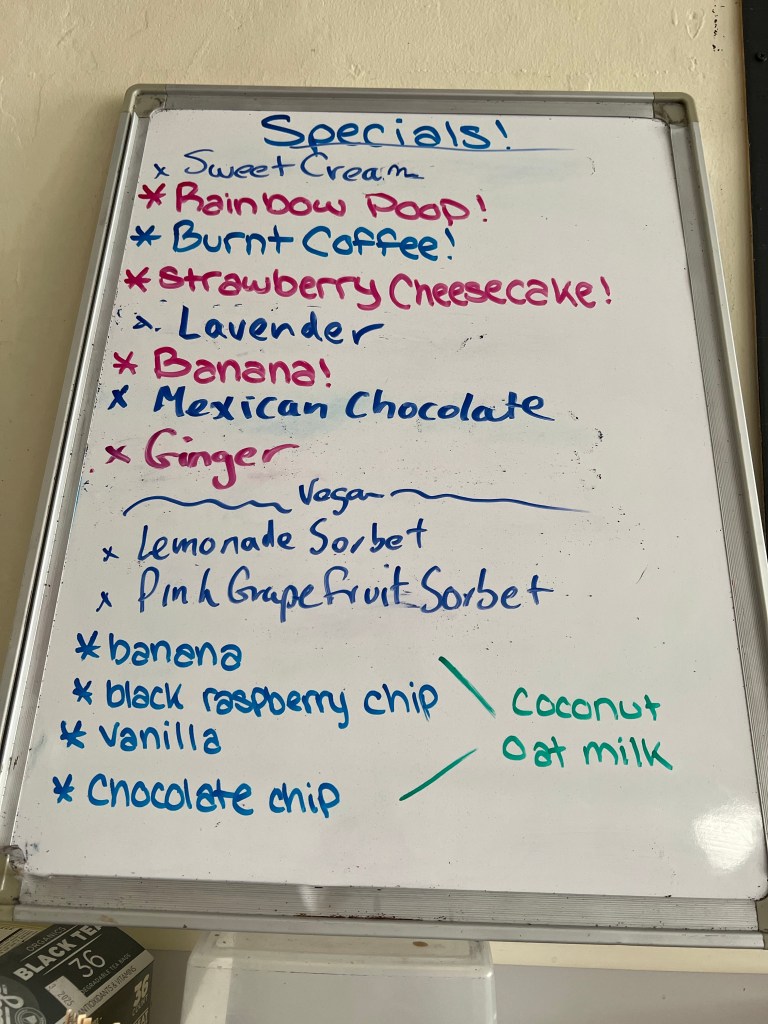 Specials!
x Sweet Cream
* Rainbow Poop!
* Burnt Coffee!
* Strawberry Cheesecake!
x Lavender
* Banana!
x Mexican Chocolate
x Ginger
Vegan
x Lemonade Sorbet
x Pink Grapefruit Sorbet
* banana
* black raspberry chip
* vanilla
* Chocolate chip
Coconut
Oat milk
ORGANIC
BLACK TEA
36
36